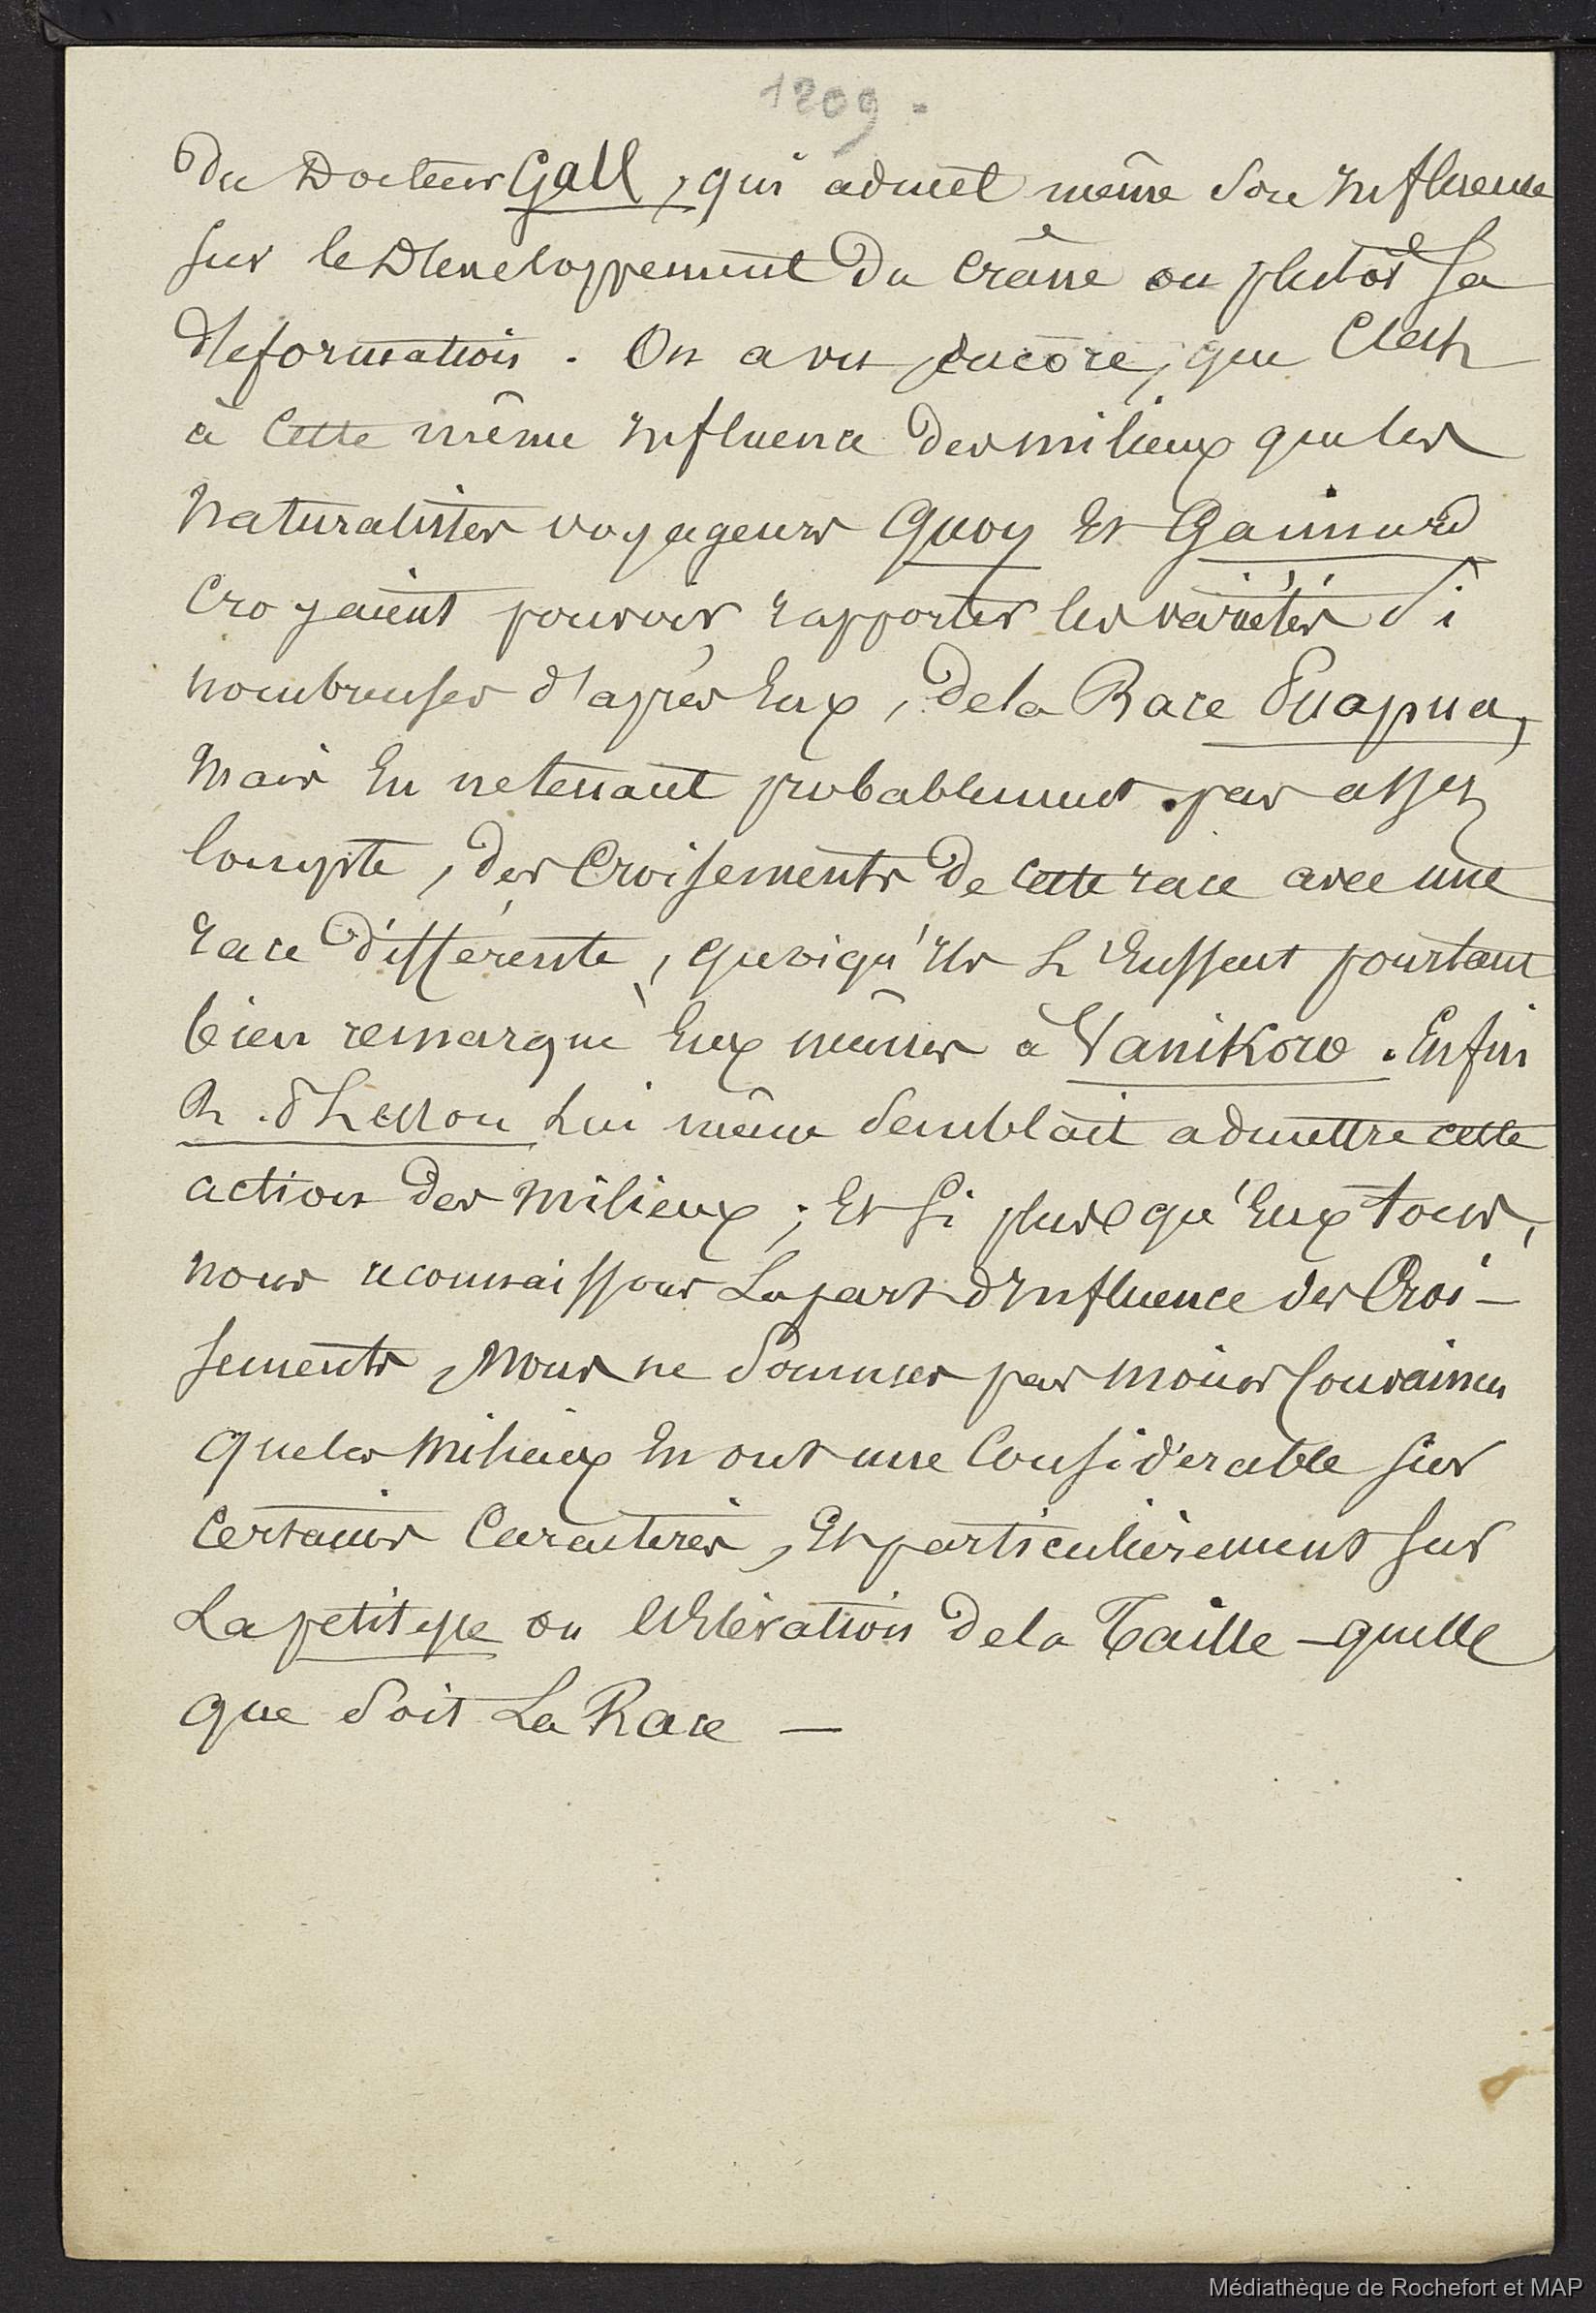 1209.
du Docteur Gall, qui admet même son influence
sur le Développement du Crâne ou plutôt sa
déformation. On a vu, encore, que C'est
à Cette même influence des milieux que les
Naturalistes voyageurs Quoy Et Gaimard
Croyaient pouvoir rapporter les variétés si
nombreuses d'après Eux, de la Race
Mais En ne tenant probablement pas assez
Compte, des Croisements de cette race avec une
race différente, quoiqu'ils L'Eussent pourtant
bien remarqué Eux mêmes à Vanikoro. Enfin
Lesson Lui même semblait admettre cette
action des Milieux; Et si plus qu'Eux tous,
nous reconnaissons La part d'influence des Croi-
sements, Nous ne sommes pas moins Convaincu
que les Milieux En ont une Considérable sur
Certains Caractères, Et particulièrement sur
La petitesse ou l'élévation de la Taille – quelle
que soit La Race –
Médiathèque de Rochefort et MAP